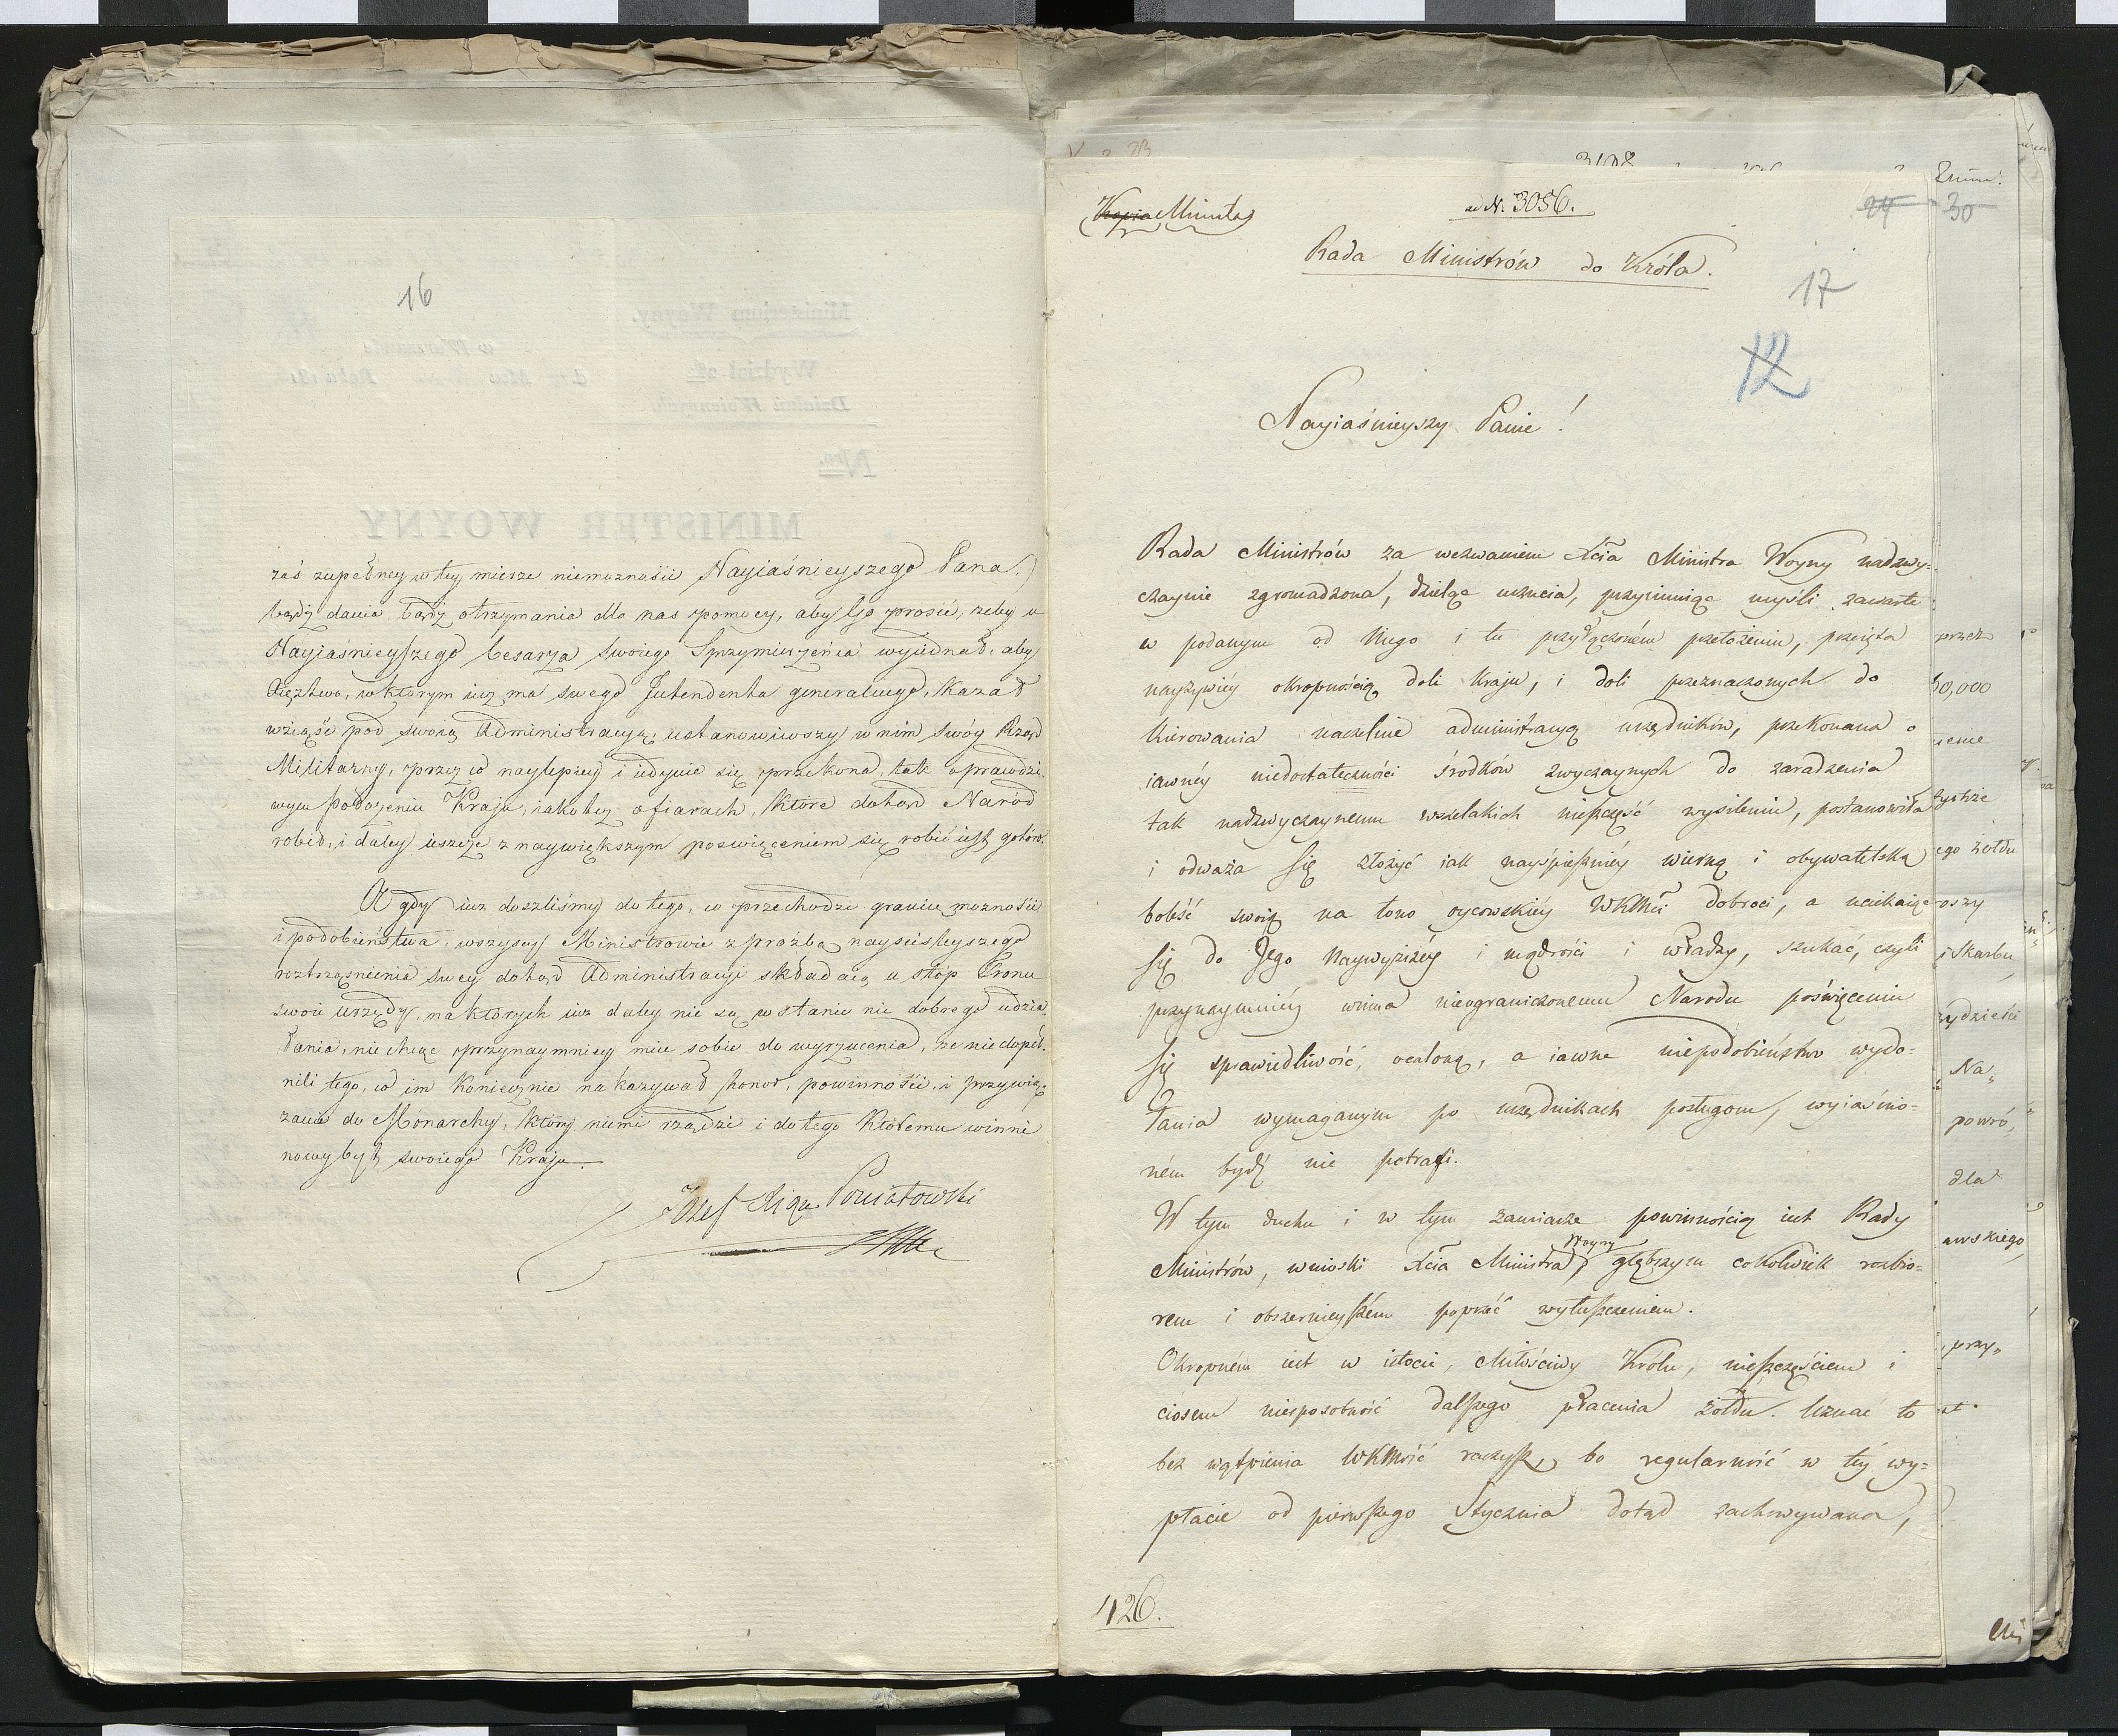 16
zaś zupełney w tey mierze niemożności Nayiaśnieyszego Pana
bądź dania bądź otrzymania dla nas pomocy, aby Go prosić, żeby u
Nayiaśnieyszego Cesarza swoiego Sprzymierzeńca wyiednał, aby
Xięztwo, w którym iuż ma swego Intendenta generalnego, kazał
wziąść pod swoią Administracyą, ustanowiwszy w nim swóy Rząd
Militarny, przez co naylepiey i iedynie się przekona, tak o prawdzi-
wym położeniu Kraju, iako też ofiarach, które dotąd Naród
robił, i daley ieszcze z naywiększym poświęceniem się robić iest gotów.
A gdy iuż doszliśmy do tego, co przechodzi granice możności
i podobieństwa, wszyscy Ministrowie z prożbą nayściśleyszego
roztrząśnienia swey dotąd Administracyi składaią u stóp Tronu
swoie urzędy, na których iuż daley nie są w stanie nic dobrego udzia-
łania, nie chcąc przynaymniey mieć sobie do wyrzucenia, że nie dopeł-
nili tego, co im koniecznie nakazywał honor, powinność, i przywią-
zanie do Monarchy, który niemi rządzi i do tego któremu winni
nowy byt swoiego Kraju.
Józef Xiąże Poniatowski
Kopia Minuta
ad N. 3056.
24
30
Rada Ministrów do Króla.
17
12
Nayiaśnieyszy Panie!
Rada Ministrów za wezwaniem Xcia Ministra Woyny nadzwy=
czaynie zgromadzona, dzieląc uczucia, przyimuiąc myśli zawarte
w podanym od Niego i tu przyłączoném przełożeniu, przeięta
nayżywiéy okropnością doli kraju, i doli przeznaczonych do
kierowania naczelnie administracyą urzędników, przekonana o
iawnéy niedostateczności środków zwyczaynych do zaradzenia
tak nadzwyczaynemu wszelakich nieszczęść wysileniu, postanowiła
i odważa się złożyć iak nayśpieszniéy wierną i obywatelską
boleść swoią na łono oycowskiéy WKMci dobroci, a uciekaiąc
się do Jego Naywyższéy i mądrości i władzy, szukać, czyli
przynaymniéy winna nieograniczonemu Narodu poświęceniu
się sprawiedliwość, ocaloną, a iawne niepodobieństwo wydo=
łania wymaganym po urzędnikach posługom, wyiaśnio=
ném bydź nie potrafi.
W tym duchu i w tym zamiarze powinnością iest Rady
Ministrów, wnioski Xcia Ministra Woyny głębszym cokolwiek rozbio=
rem i obszernieyszém poprzeć wyłuszczeniem.
Okropném iest w istocie, Miłościwy Królu, nieszczęściem i
ciosem niesposobność dalszego płacenia żołdu. Uznać to
bez wątpienia WKMość raczysz, bo regularność w téy wy=
płacie od pierwszego Stycznia dotąd zachowywana,
426.
przez
ego żołdu
i Skarbu
Na„
powró„
dla
przy„